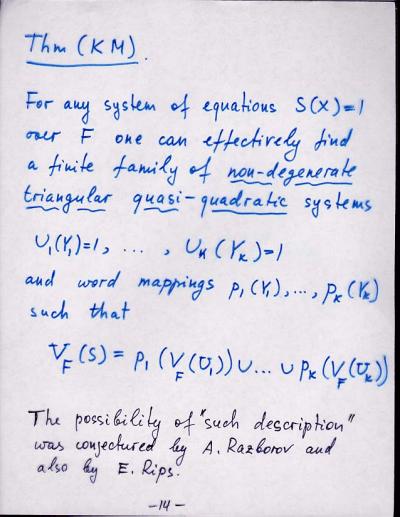 Thm (KM).
For any system of equations S(X)=1
over F one can effectively find
a finite family of non-degenerate
triangular quasi-quadratic systems
U₁(Y₁)=1, ... , Uₖ(Yₖ)=1
and word mappings p₁(Y₁),...,pₖ(Yₖ)
such that
V_F(S) = p₁(V_F(U₁)) ∪ ... ∪ pₖ(V_F(Uₖ))
The possibility of "such description"
was conjectured by A. Razborov and
also by E. Rips.
-14-